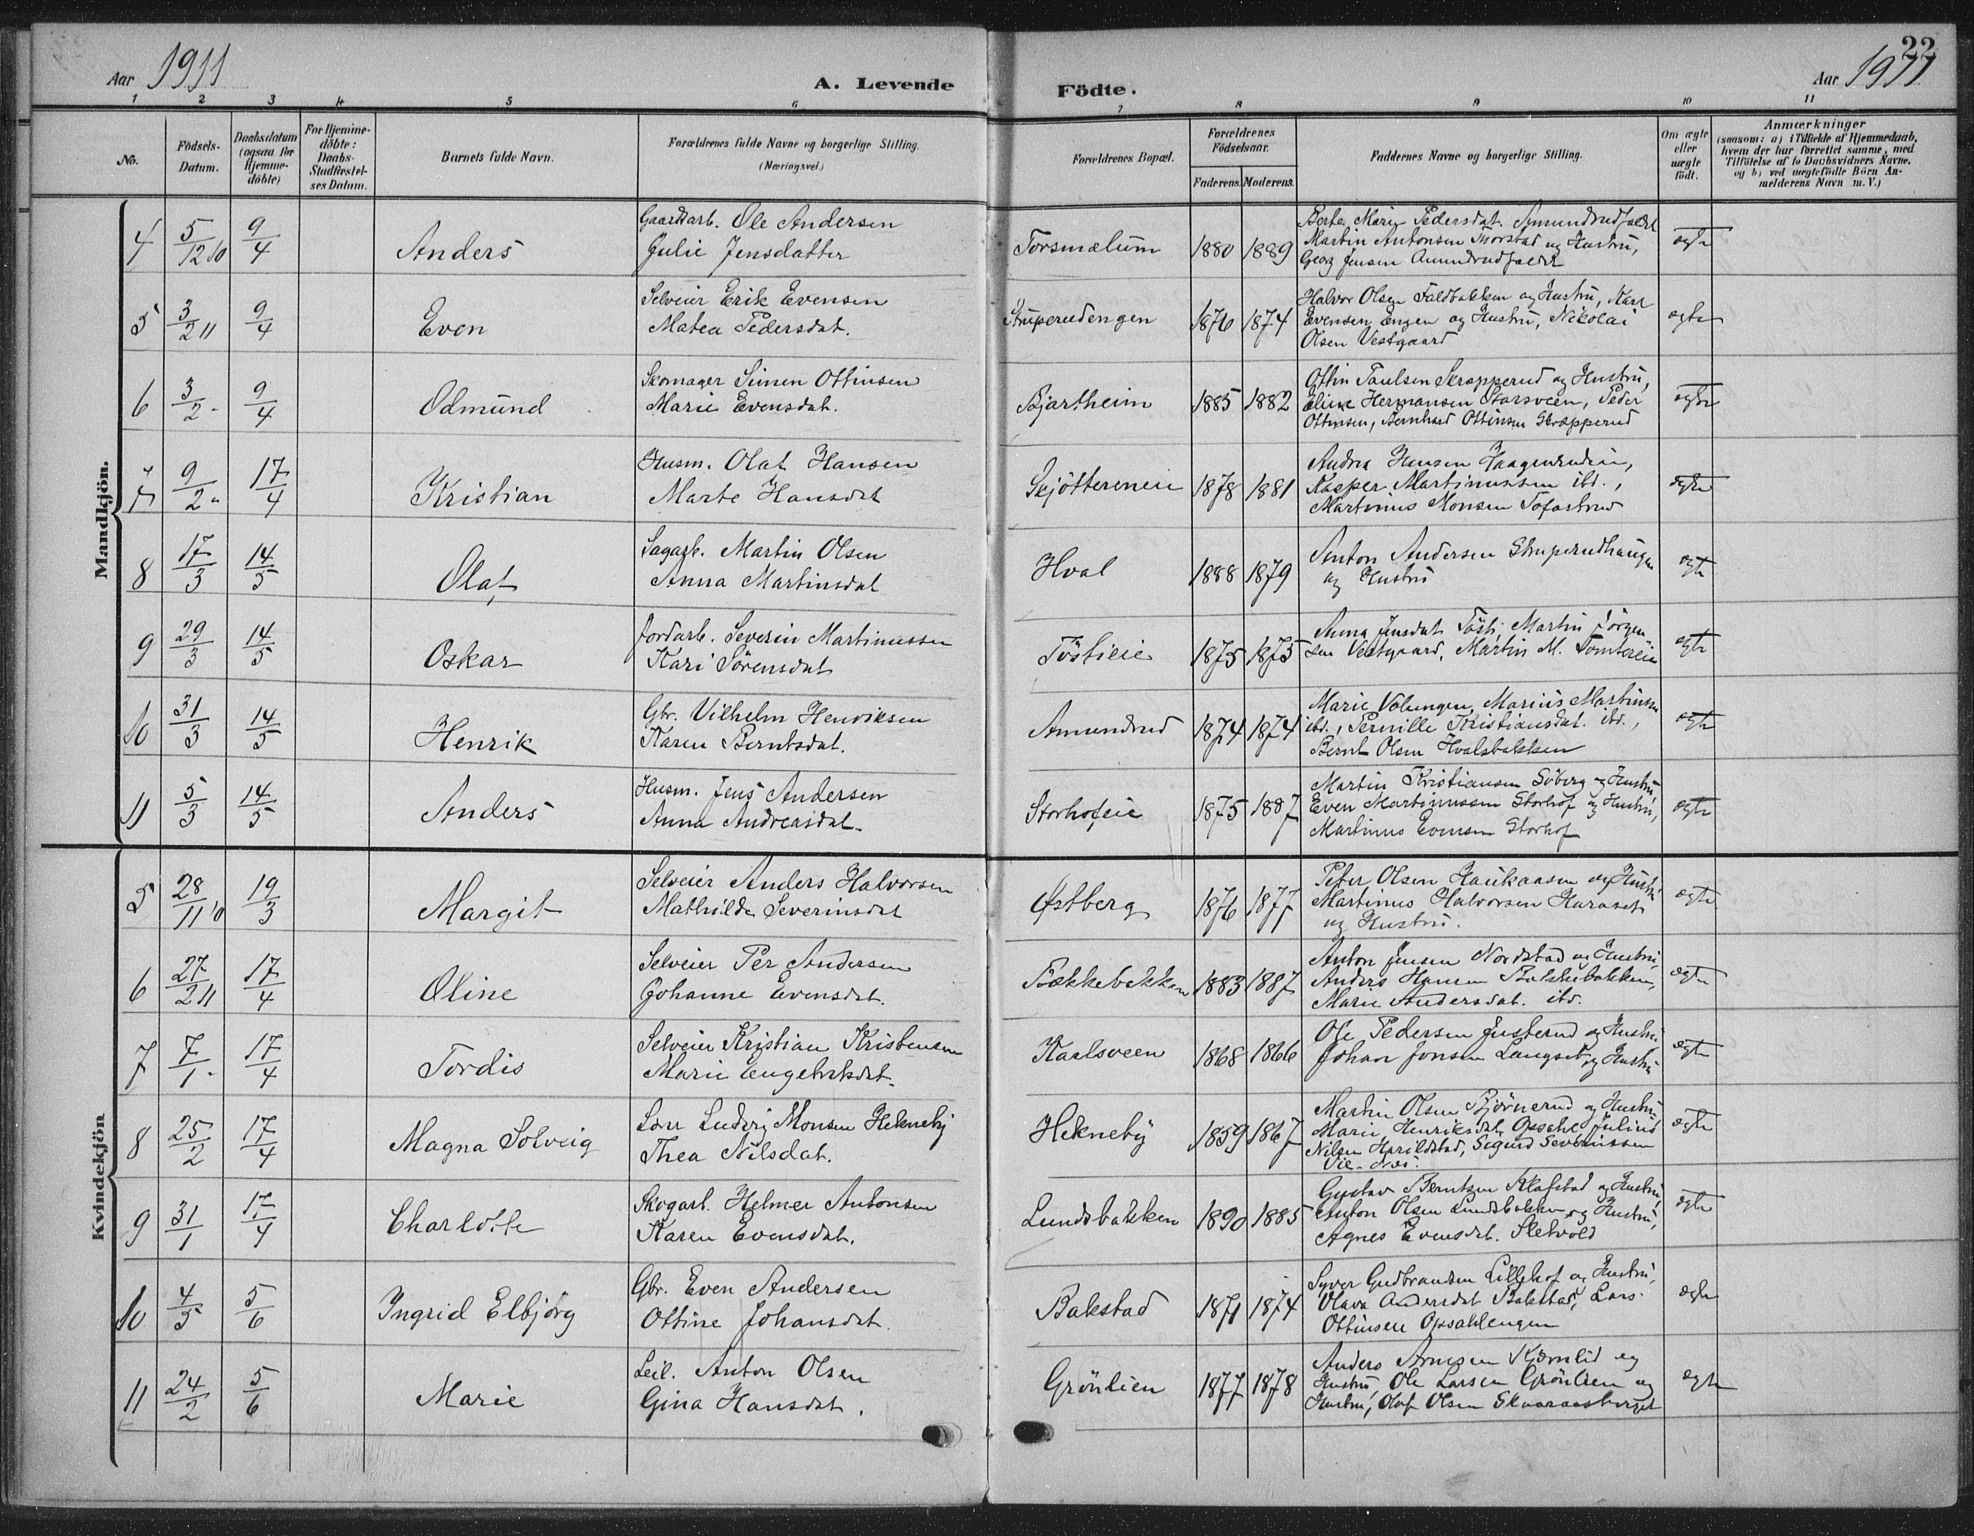 Aar 1911
A. Levende
Födte.
22
Aar 1911
1 2 3 4 5 6 7 8 9 10 11
No.
Födsels-
Datum.
Daabsdatum
(ogsaa for
Hjemme-
döbte)
For Hjemme-
döbte:
Daabs-
Stadfæstel-
ses Datum.
Barnets fulde Navn.
Forældrenes fulde Navne og borgerlige Stilling.
(Næringsvei.)
Forældrenes Bopæl.
Forældrenes
Födselsaar.
Faderens. Moderens.
Faddernes Navne og borgerlige Stilling.
Om ægte
eller
uægte
født.
Anmærkninger
(saasom: a) i Tilfælde af Hjemmedaab,
hvem der har forrettet samme, med
Tilföielse af to Daabsvidners Navne,
og b) ved uægtefödte Börn An-
melderens Navn m. V.)
Mandkjön.
4 5/12 10 9/4 Anders
Gaardarb. Ole Andersen
Julie Jensdatter
Torsmælum 1880 1889
Berte Marie Pedersdat.
Martin Antonsen Thorstad og Hustru,
Georg Jensen
ægte
5 3/2 11 9/4 Even
Selveier Erik Evensen
Matea Pedersdat.
Struperudengen 1876 1874
Halvor Olsen Faldbakken og Hustru, Karl
Evensen Engen og Hustru, Nikolai
Olsen Vestgaard
ægte
6 3/2 - 9/4 Odmund
Skomager Simen Ottinsen
Marie Evensdat.
Bjartheim 1885 1882
Ottin Paulsen Skrapperud og Hustru,
Eline Hermansen, Peder
Ottinsen, Bernhard Ottinsen Skrapperud
ægte
7 9/2 " 17/4 Kristian
Husm. Olaf Hansen
Marte Hansdat
Skjøttereneie 1878 1881
Andrea Hansen Haagenrudeie,
Kasper Martinussen ibd.,
Martinus Monsen Tofastrud
ægte
8 17/3 14/5 Olaf
Sagarb. Martin Olsen
Anna Martinsdat
Hval 1888 1879
Anton Andersen Struperudhaugen
og Hustru
ægte
9 29/3 14/5 Oskar
Jordarb. Severin Martinussen
Kari Sörensdat
Töstieie 1875 1875
Anna Jensdat Tösti, Martin Jörgen-
sen Vestgaard, Martin M. Tomtereie
ægte
10 31/3 14/5 Henrik
Gbr. Vilhelm Henriksen
Karen Berntsdat.
Amundrud 1874 1874
Marie Volungen, Marius Martinsen
ibd., Pernille Kristiansdat. ibd.,
Bernt Olsen Hvalsbakken
ægte
11 5/3 14/5 Anders
Husm. Jens Andersen
Anna Andreasdat.
Storhofeie 1875 1887
Martin Kristiansen Söberg og Hustru,
Even Martinussen Storhof og Hustru,
Martinus Evensen Storhof
ægte
Kvindekjön
5 28/11 10 19/3 Margit
Selveier Anders Halvorsen
Mathilde Severinsdat
Østberg 1876 1877
Peter Olsen Haukaasen og Hustru
Martinus Halvorsen Haraset
og Hustru.
ægte
6 27/2 11 17/4 Oline
Selveier Per Andersen
Johanne Evensdat.
Bækkebakken 1883 1887
Anton Jensen Nordstad og Hustru,
Anders Hansen Bækkebakken,
Marie Andersdat. ibd.
ægte
7 7/1 - 17/4 Tordis
Selveier Kristian Kristensen
Marie Engebretsdat.
Karlsveen 1868 1866
Ole Pedersen Justerud og Hustru
Johan Jonsen Langset og Hustru
ægte
8 25/2 17/4 Magna Solveig
Ludvig Monsen Hekneby
Thea Nilsdat.
Hekneby 1859 1867
Martin Olsen Bjørnerud og Hustru
Marie Henriksdat. Opsahl, Julius
Nilsen Harildstad, Sigurd Severinssen
ægte
9 31/1 17/4 Charlotte
Skogarb. Helmer Antonsen
Karen Evensdat.
Lundsbakken 1890 1885
Gustav Berntsen Klafstad og Hustru,
Anton Olsen Lundsbakken og Hustru,
Agnes Evensdat. Sletvold
ægte
10 4/5 5/6 Ingrid Elbjørg
Gbr. Even Andersen
Ottine Johansdat.
Bakstad 1871 1874
Syver Gudbrandsen Lillehof og Hustru,
Olava Andersdat Bakstad, Lars
Ottinsen Opsahlengen
ægte
11 24/2 5/6 Marie
Leil. Anton Olsen
Gina Hansdat.
Grönlien 1877 1878
Anders Arnesen Kjernlid og
Hustru, Ole Larsen Grönlien og
Hustru, Olaf Olsen Skaaraasberget
ægte